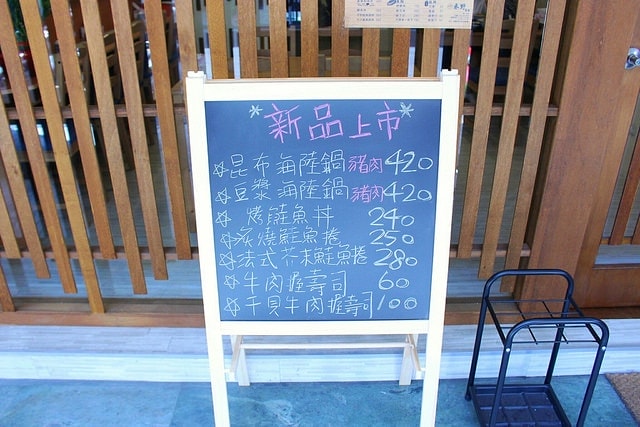 *新品上市*
☆昆布海陸鍋豬肉420
☆豆漿海陸鍋豬肉420
☆烤鮭魚丼 240
☆炙燒鮭魚捲 250
☆法式芥末鮭魚捲 280
☆牛肉握壽司 60
☆干貝牛肉握壽司100